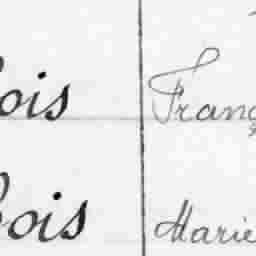 ois Franç
ois Marie